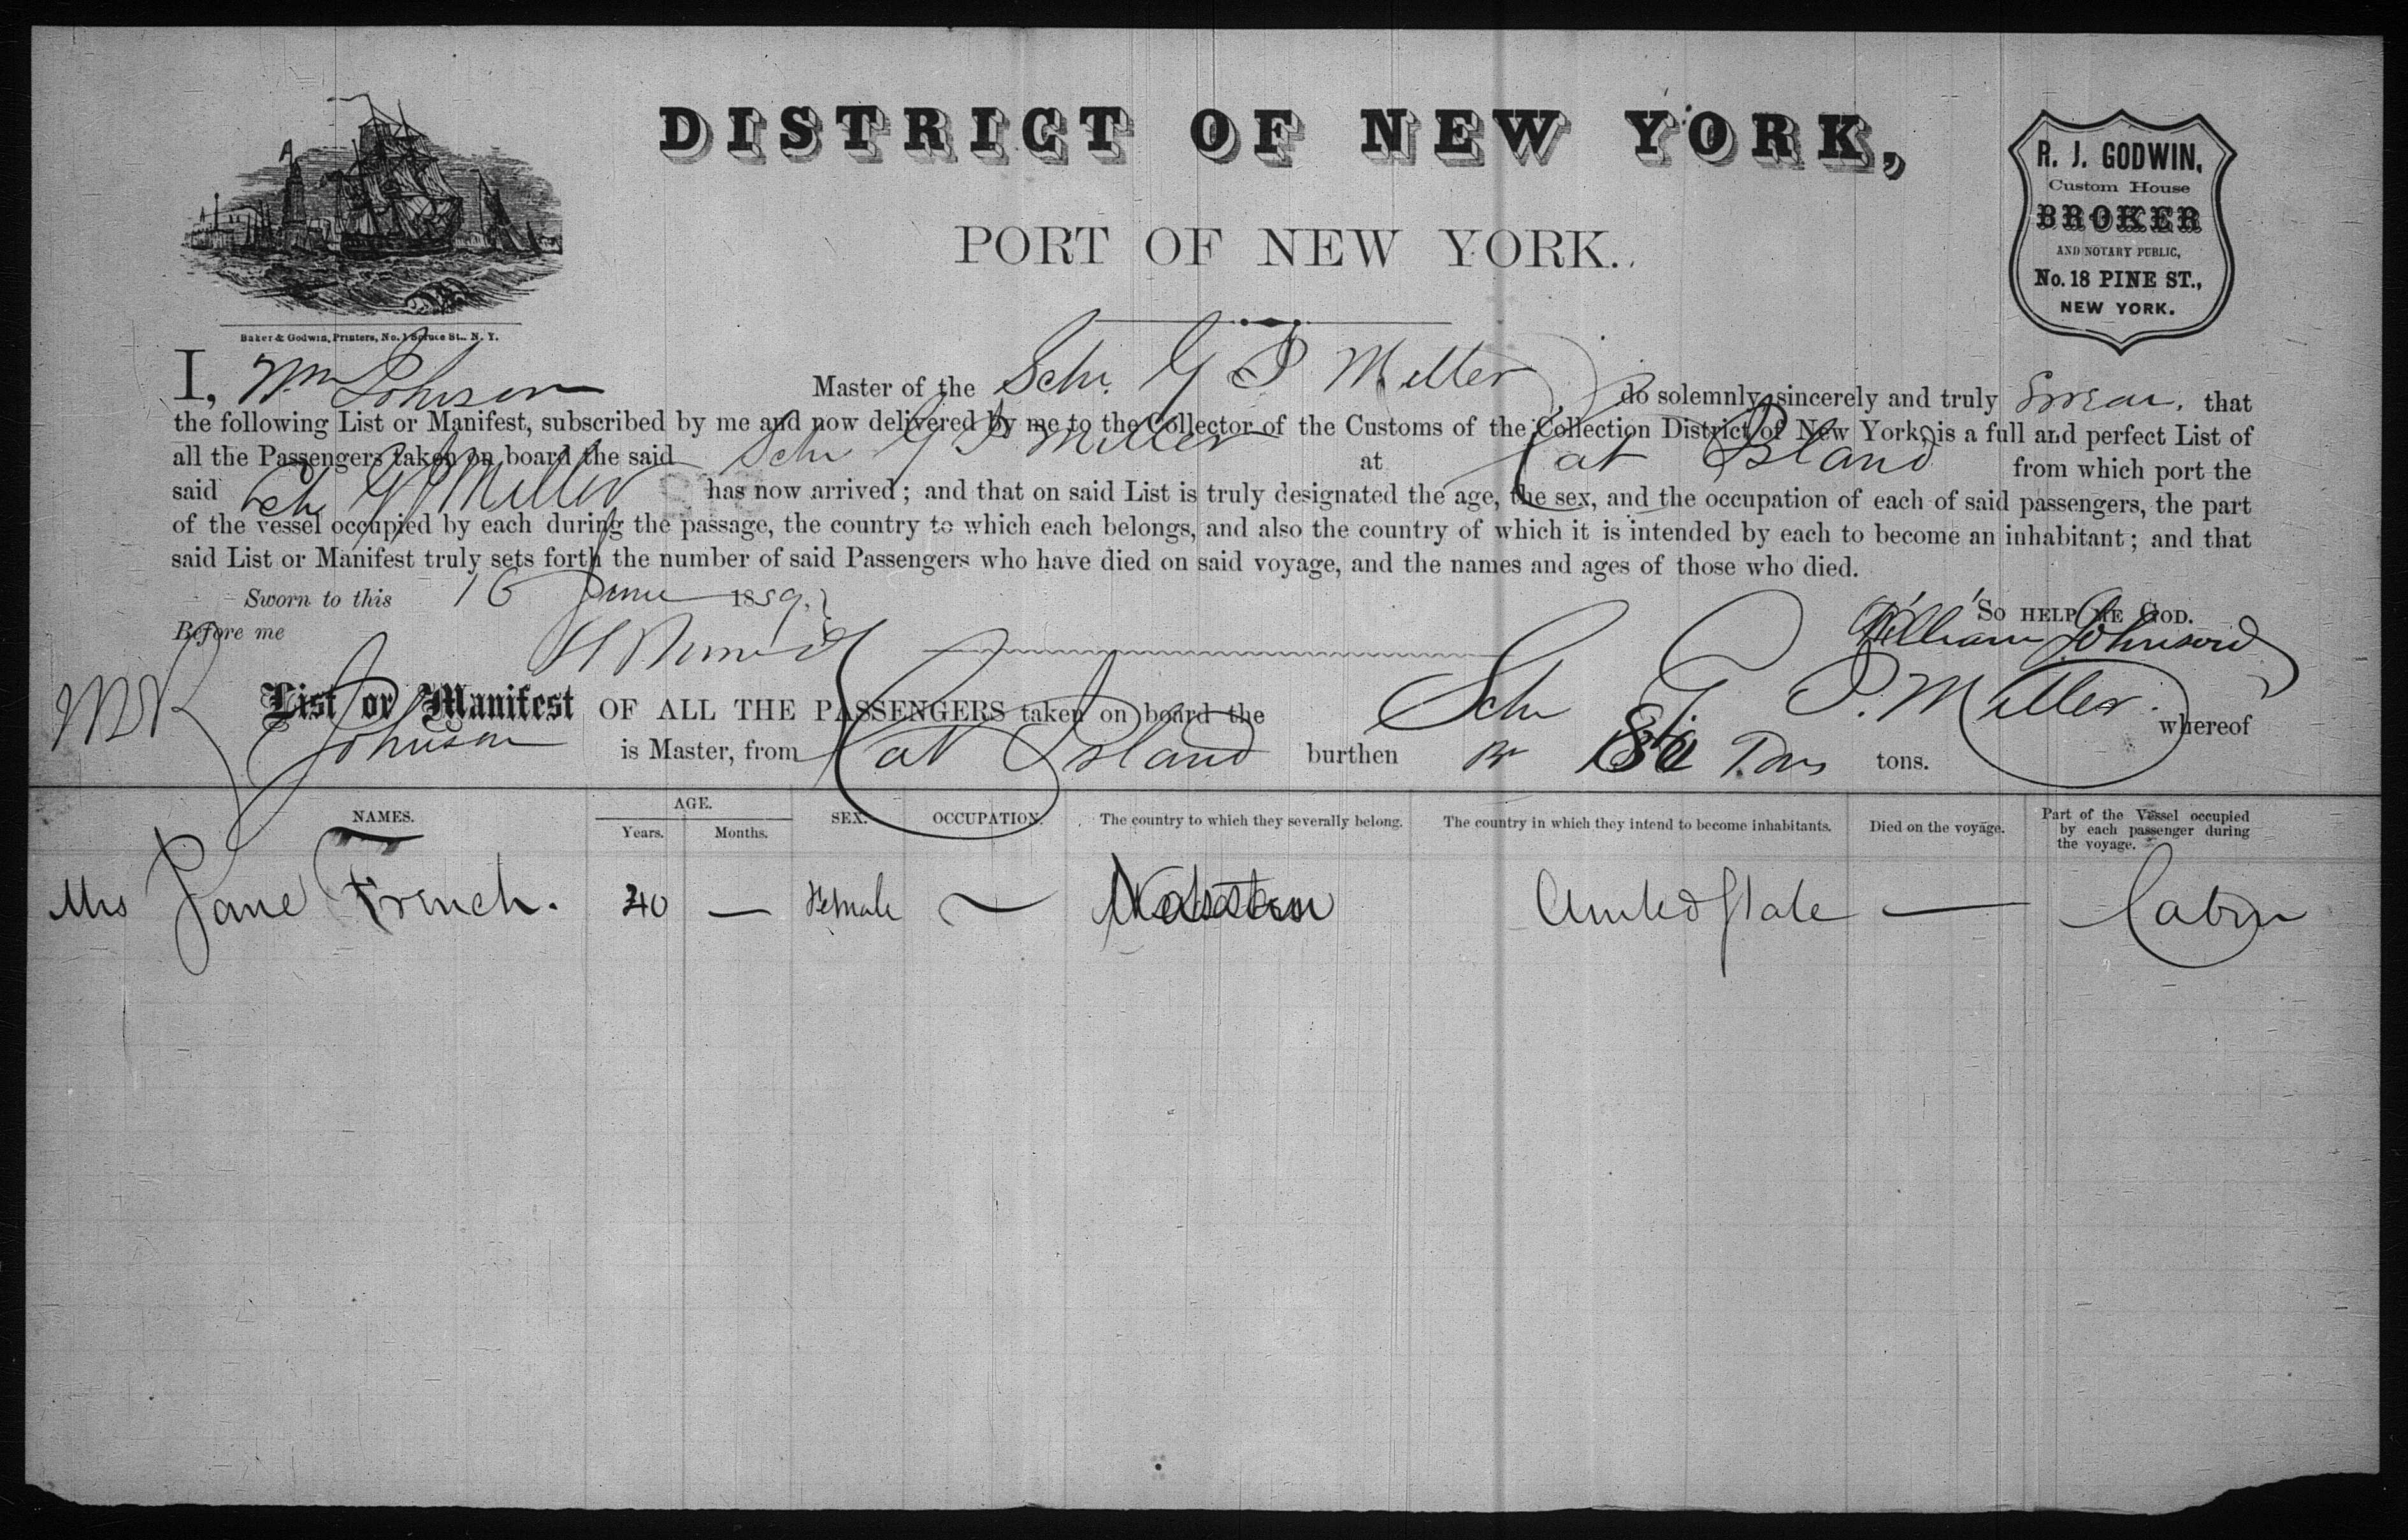 DISTRICT OF NEW YORK,
PORT OF NEW YORK.
R. J. GODWIN,
Custom House
BROKER
AND NOTARY PUBLIC,
No. 18 PINE ST.,
NEW YORK.
Baker & Godwin, Printers, No. 1 Spruce St., N. Y.
I, Wm Johnson Master of the Schr. G P Miller do solemnly, sincerely and truly Swear, that
the following List or Manifest, subscribed by me and now delivered by me to the Collector of the Customs of the Collection District of New York, is a full and perfect List of
all the Passengers taken on board the said Schr G P Miller at Cat Island from which port the
said Sch G P Miller has now arrived; and that on said List is truly designated the age, the sex, and the occupation of each of said passengers, the part
of the vessel occupied by each during the passage, the country to which each belongs, and also the country of which it is intended by each to become an inhabitant; and that
said List or Manifest truly sets forth the number of said Passengers who have died on said voyage, and the names and ages of those who died.
Sworn to this 16 June 1859.
So HELP ME GOD.
Before me
William Johnson
List or Manifest OF ALL THE PASSENGERS taken on board the Schr G P. Miller whereof
Johnson is Master, from Cat Island burthen Tons tons.
NAMES. AGE. Years. Months. SEX. OCCUPATION. The country to which they severally belong. The country in which they intend to become inhabitants. Died on the voyage. Part of the Vessel occupied by each passenger during the voyage.
Mrs Jane French. 40 — Female — United State — Cabin